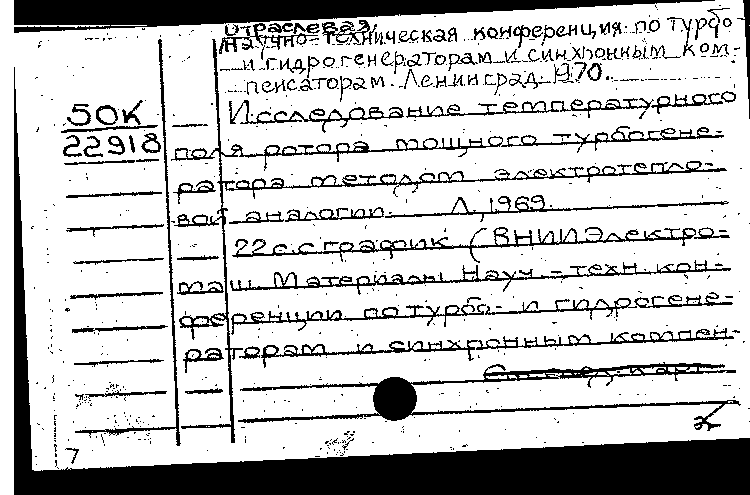 Отраслевая
Научно-техническая конференция по турбо-
и гидрогенераторам и синхронным ком-
пенсаторам. Ленинград. 1970.
50К
22918
Исследование температурного
поля ротора мощного турбогене-
ратора методом электротепло-
вой аналогии. Л, 1969.
22 с. с график (ВНИИЭлектро-
маш. Материалы Науч.-техн. кон-
ференции по турбо- и гидрогене-
раторам и синхронным компен-
7